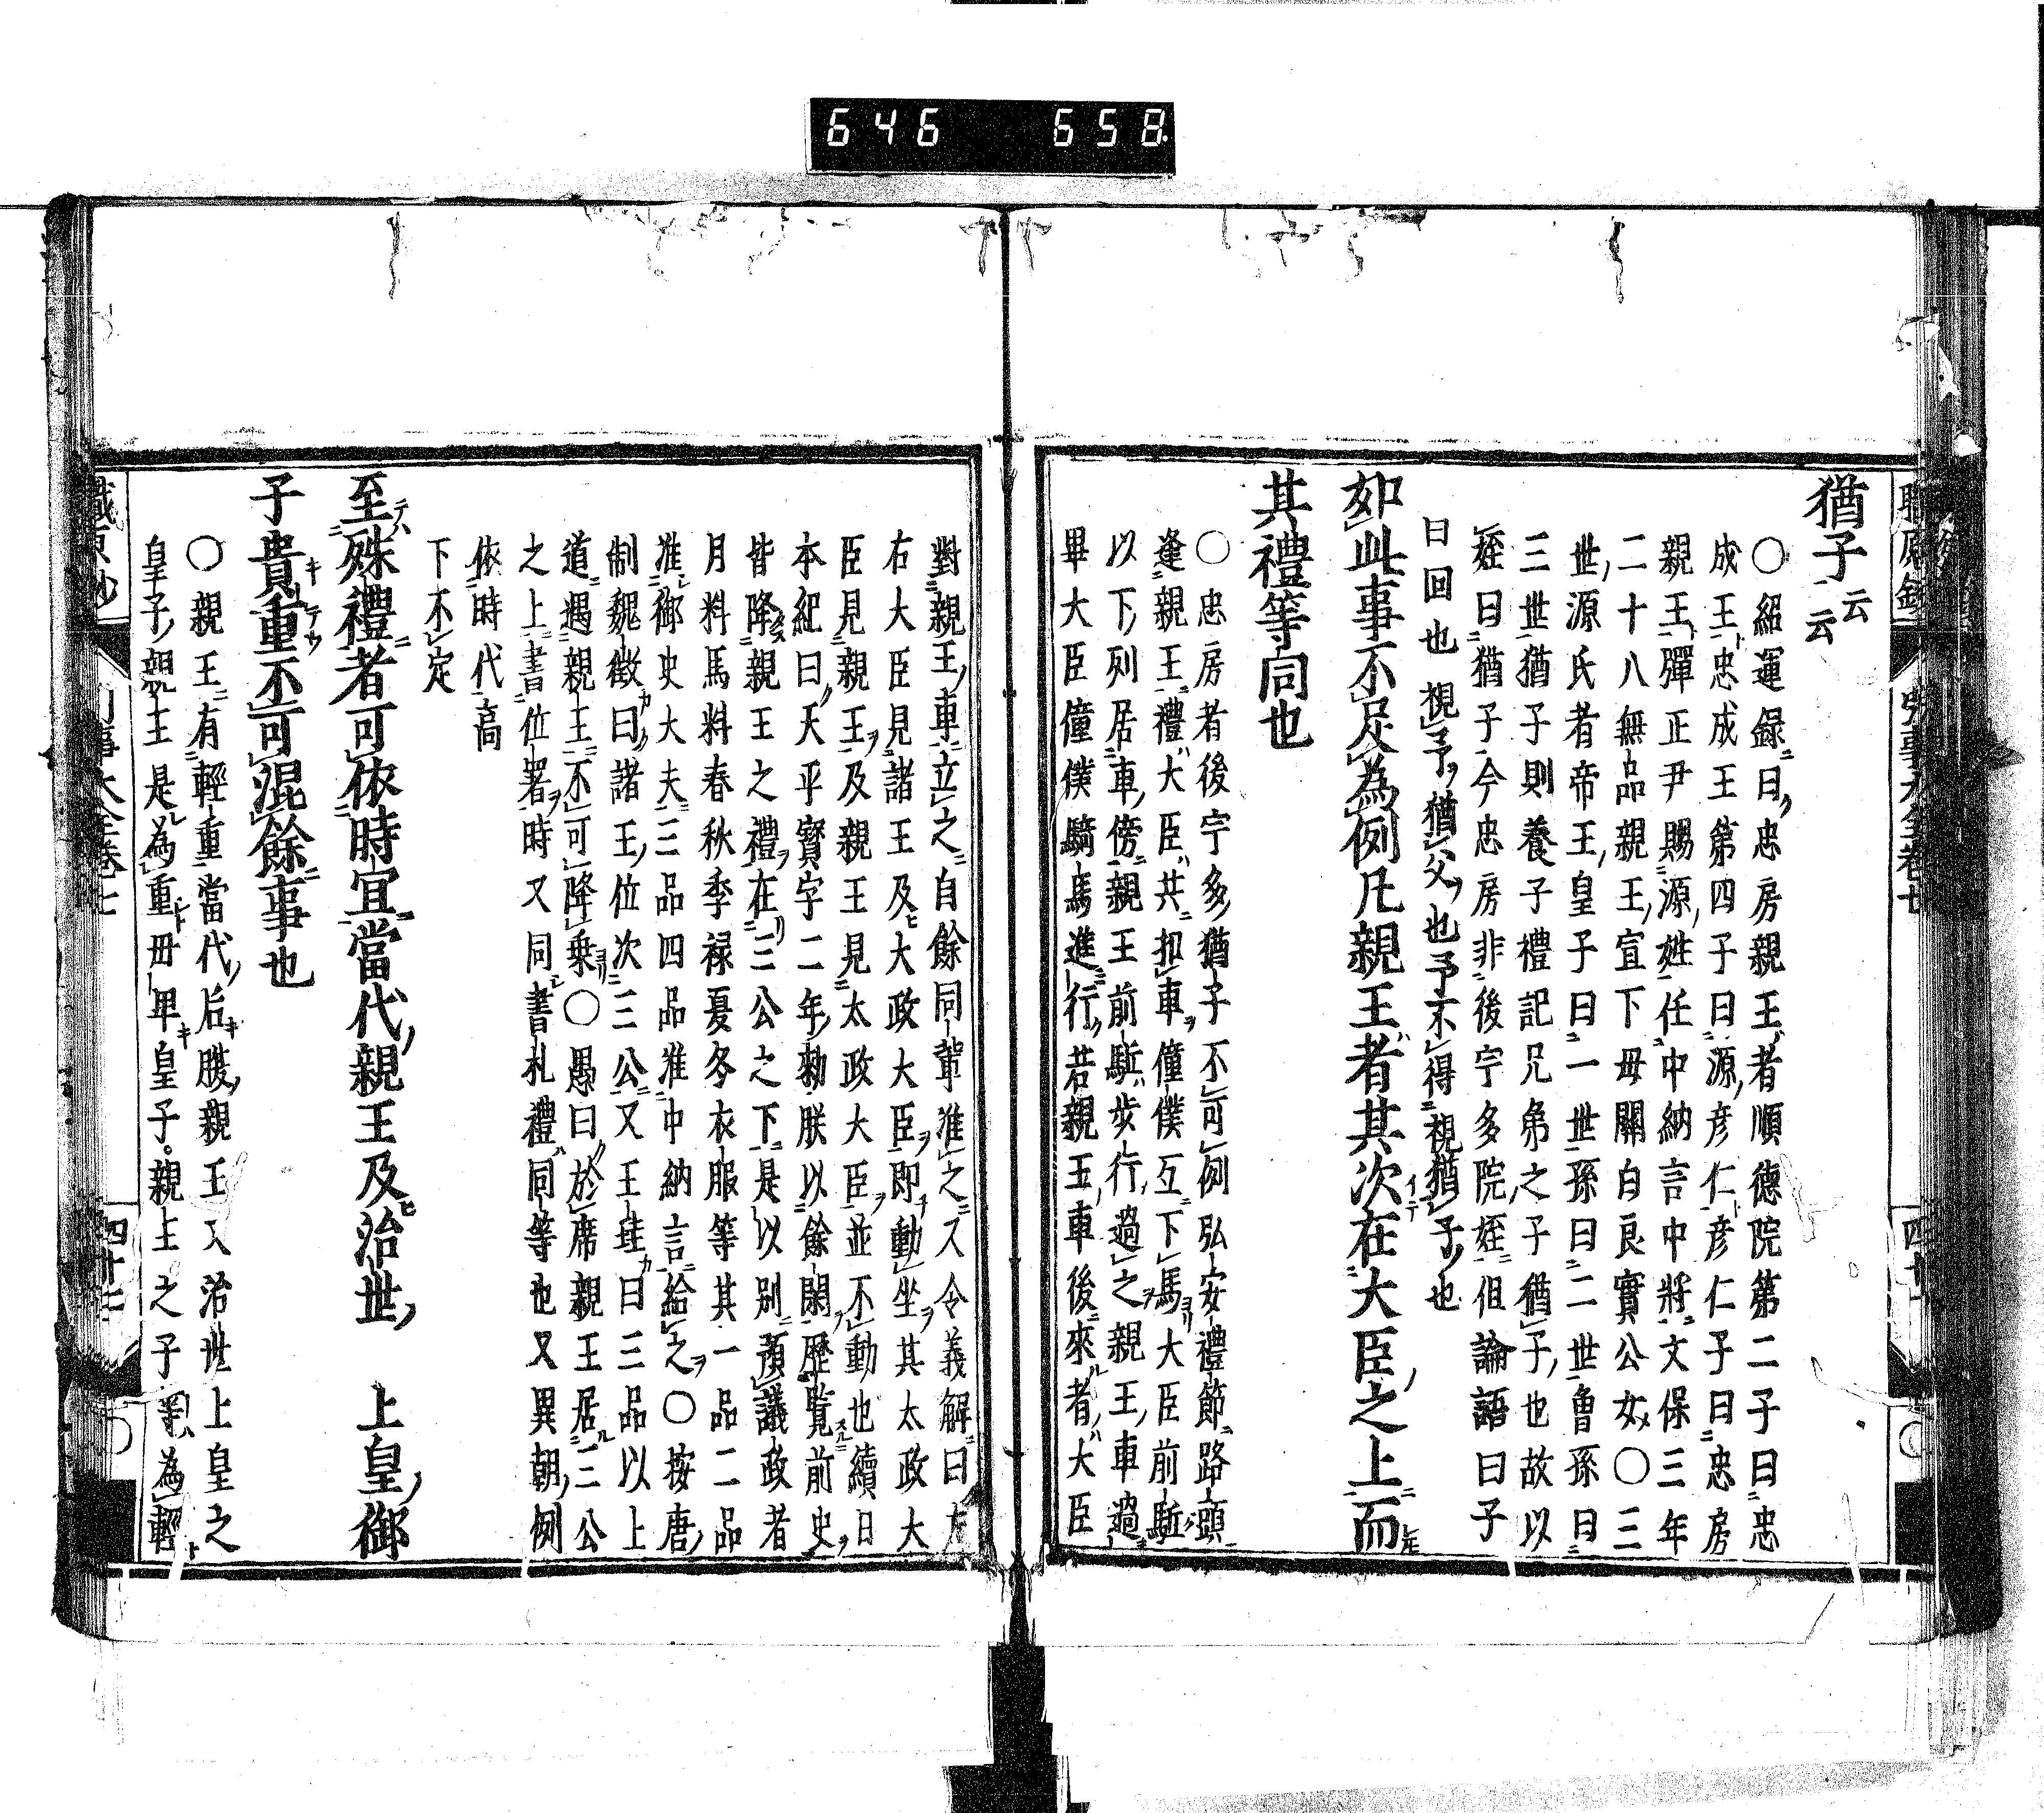 646 658
猶子云云
〇紹運録曰忠房親王者順德院第二子曰忠
成王忠成王第四子曰源彦仁彦仁子曰忠房
親王彈正尹賜源姓任中納言中將文保三年
二十八無品親王宣下母關白良實公女〇三
世源氏者帝王皇子曰一世孫曰二世曾孫曰
三世猶子則養子禮記兄弟之子猶子也故以
姪曰猶子今忠房非後宇多院姪但論語曰子
曰回也視予猶父也予不得視猶子也
如此事不足為例凡親王者其次在大臣之上而
其禮等同也
〇忠房者後宇多猶子不可例弘安禮節路頭
逢親王禮大臣共扣車僮僕互下馬大臣前駈
以下列居車傍親王前駈步行過之親王車過
畢大臣僮僕騎馬進行若親王車後來者大臣
對親王車立之自餘同輩准之又令義解曰左
右大臣見諸王及大政大臣即動坐其太政大
臣見親王及親王見太政大臣並不動也續日
本紀曰天平寶字二年勅朕以餘閑歷覧前史
皆降親王之禮在三公之下是以別預議政者
月料馬料春秋季禄夏冬衣服等其一品二品
准御史大夫三品四品准中納言給之〇按唐
制魏徵曰諸王位次三公又王珪曰三品以上
道遇親王不可降乗〇愚曰於席親王居三公
之上書位署時又同書札禮同等也又異朝例
依時代高
下不定
至殊禮者可依時宜當代親王及治世 上皇御
子貴重不可混餘事也
〇親王有輕重當代后腹親王又治世上皇之
皇子親王是為重毋卑皇子親王之子等為輕